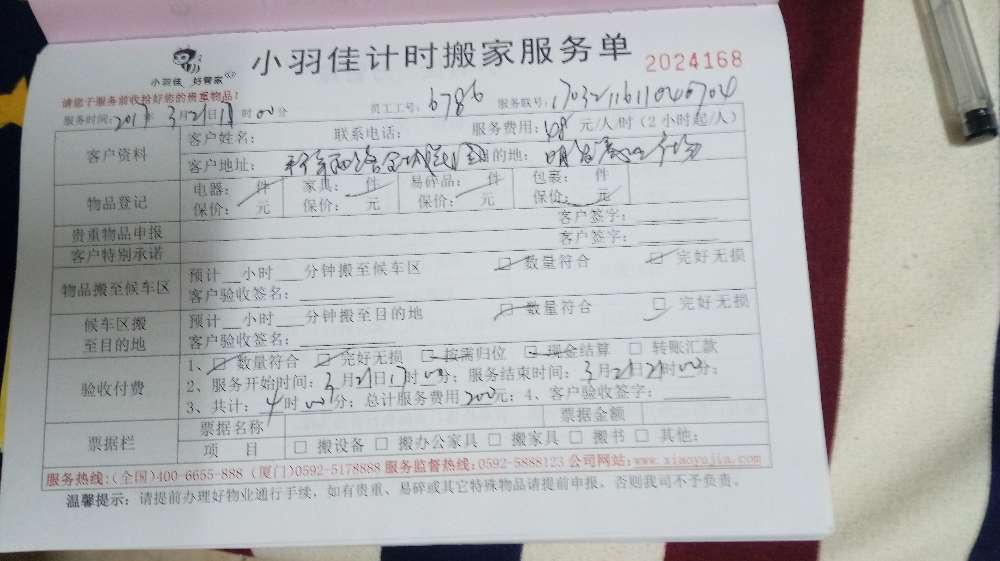 小羽佳计时搬家服务单 2024168
小羽佳 好管家
请您于服务前收拾好您的贵重物品!
服务时间:2017年3月21日17时00分 员工工号:6786 服务联号:
客户资料
客户姓名: 联系电话: 服务费用: 元/人/时(2小时起/人)
客户地址: 目的地:
物品登记
电器: 件 家具: 件 易碎品: 件 包裹: 件
保价: 元 保价: 元 保价: 元 保价: 元
贵重物品申报 客户签字:
客户特别承诺 客户签字:
物品搬至候车区
预计__小时___分钟搬至候车区 □ 数量符合 □ 完好无损
客户验收签名:
候车区搬至目的地
预计__小时___分钟搬至目的地 □ 数量符合 □ 完好无损
客户验收签名:
验收付费
1、□ 数量符合 □ 完好无损 □ 按需归位 □ 现金结算 □ 转账汇款
2、服务开始时间:3月21日17时00分;服务结束时间:3月21日21时00分;
3、共计:4时00分;总计服务费用200元;4、客户验收签字:
票据栏
票据名称 票据金额
项 目 □ 搬设备 □ 搬办公家具 □ 搬家具 □ 搬书 □ 其他:
服务热线:(全国)400-6655-888 (厦门)0592-5178888 服务监督热线:0592-5888123 公司网站:www.xiaoyujia.com
温馨提示:请提前办理好物业通行手续,如有贵重、易碎或其它特殊物品请提前申报,否则我司不予负责。